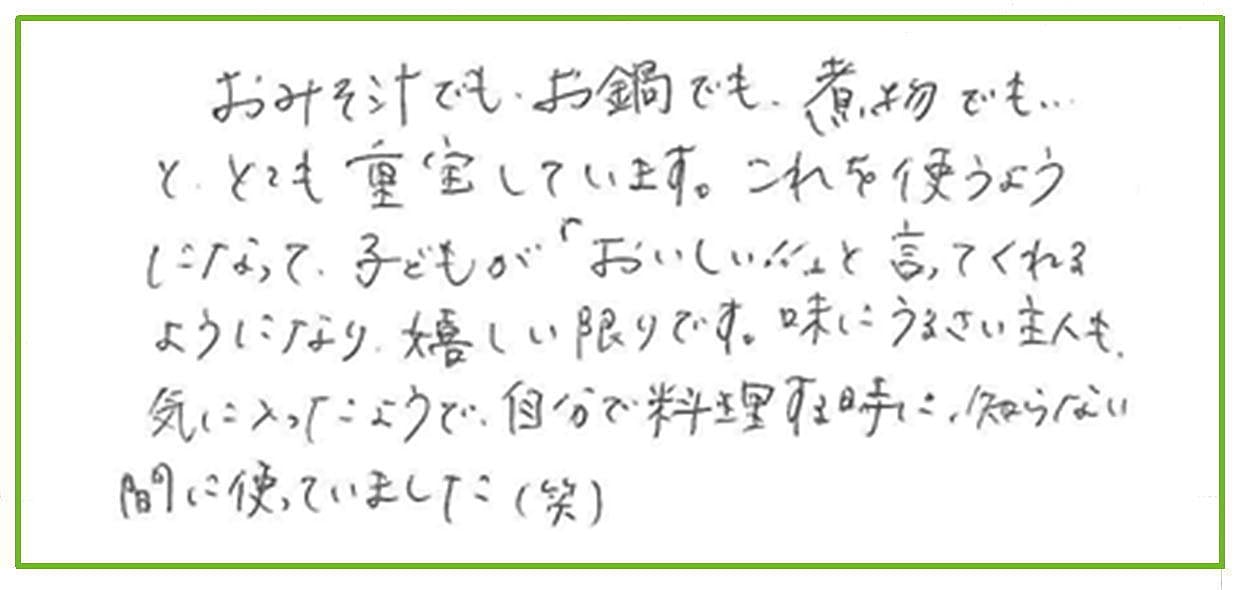 おみそ汁でも、お鍋でも、煮物でも…
と、とても重宝しています。これを使うよう
になって、子どもが「おいしい!!」と言ってくれる
ようになり、嬉しい限りです。味にうるさい主人も、
気に入ったようで、自分で料理する時に、知らない
間に使っていました(笑)